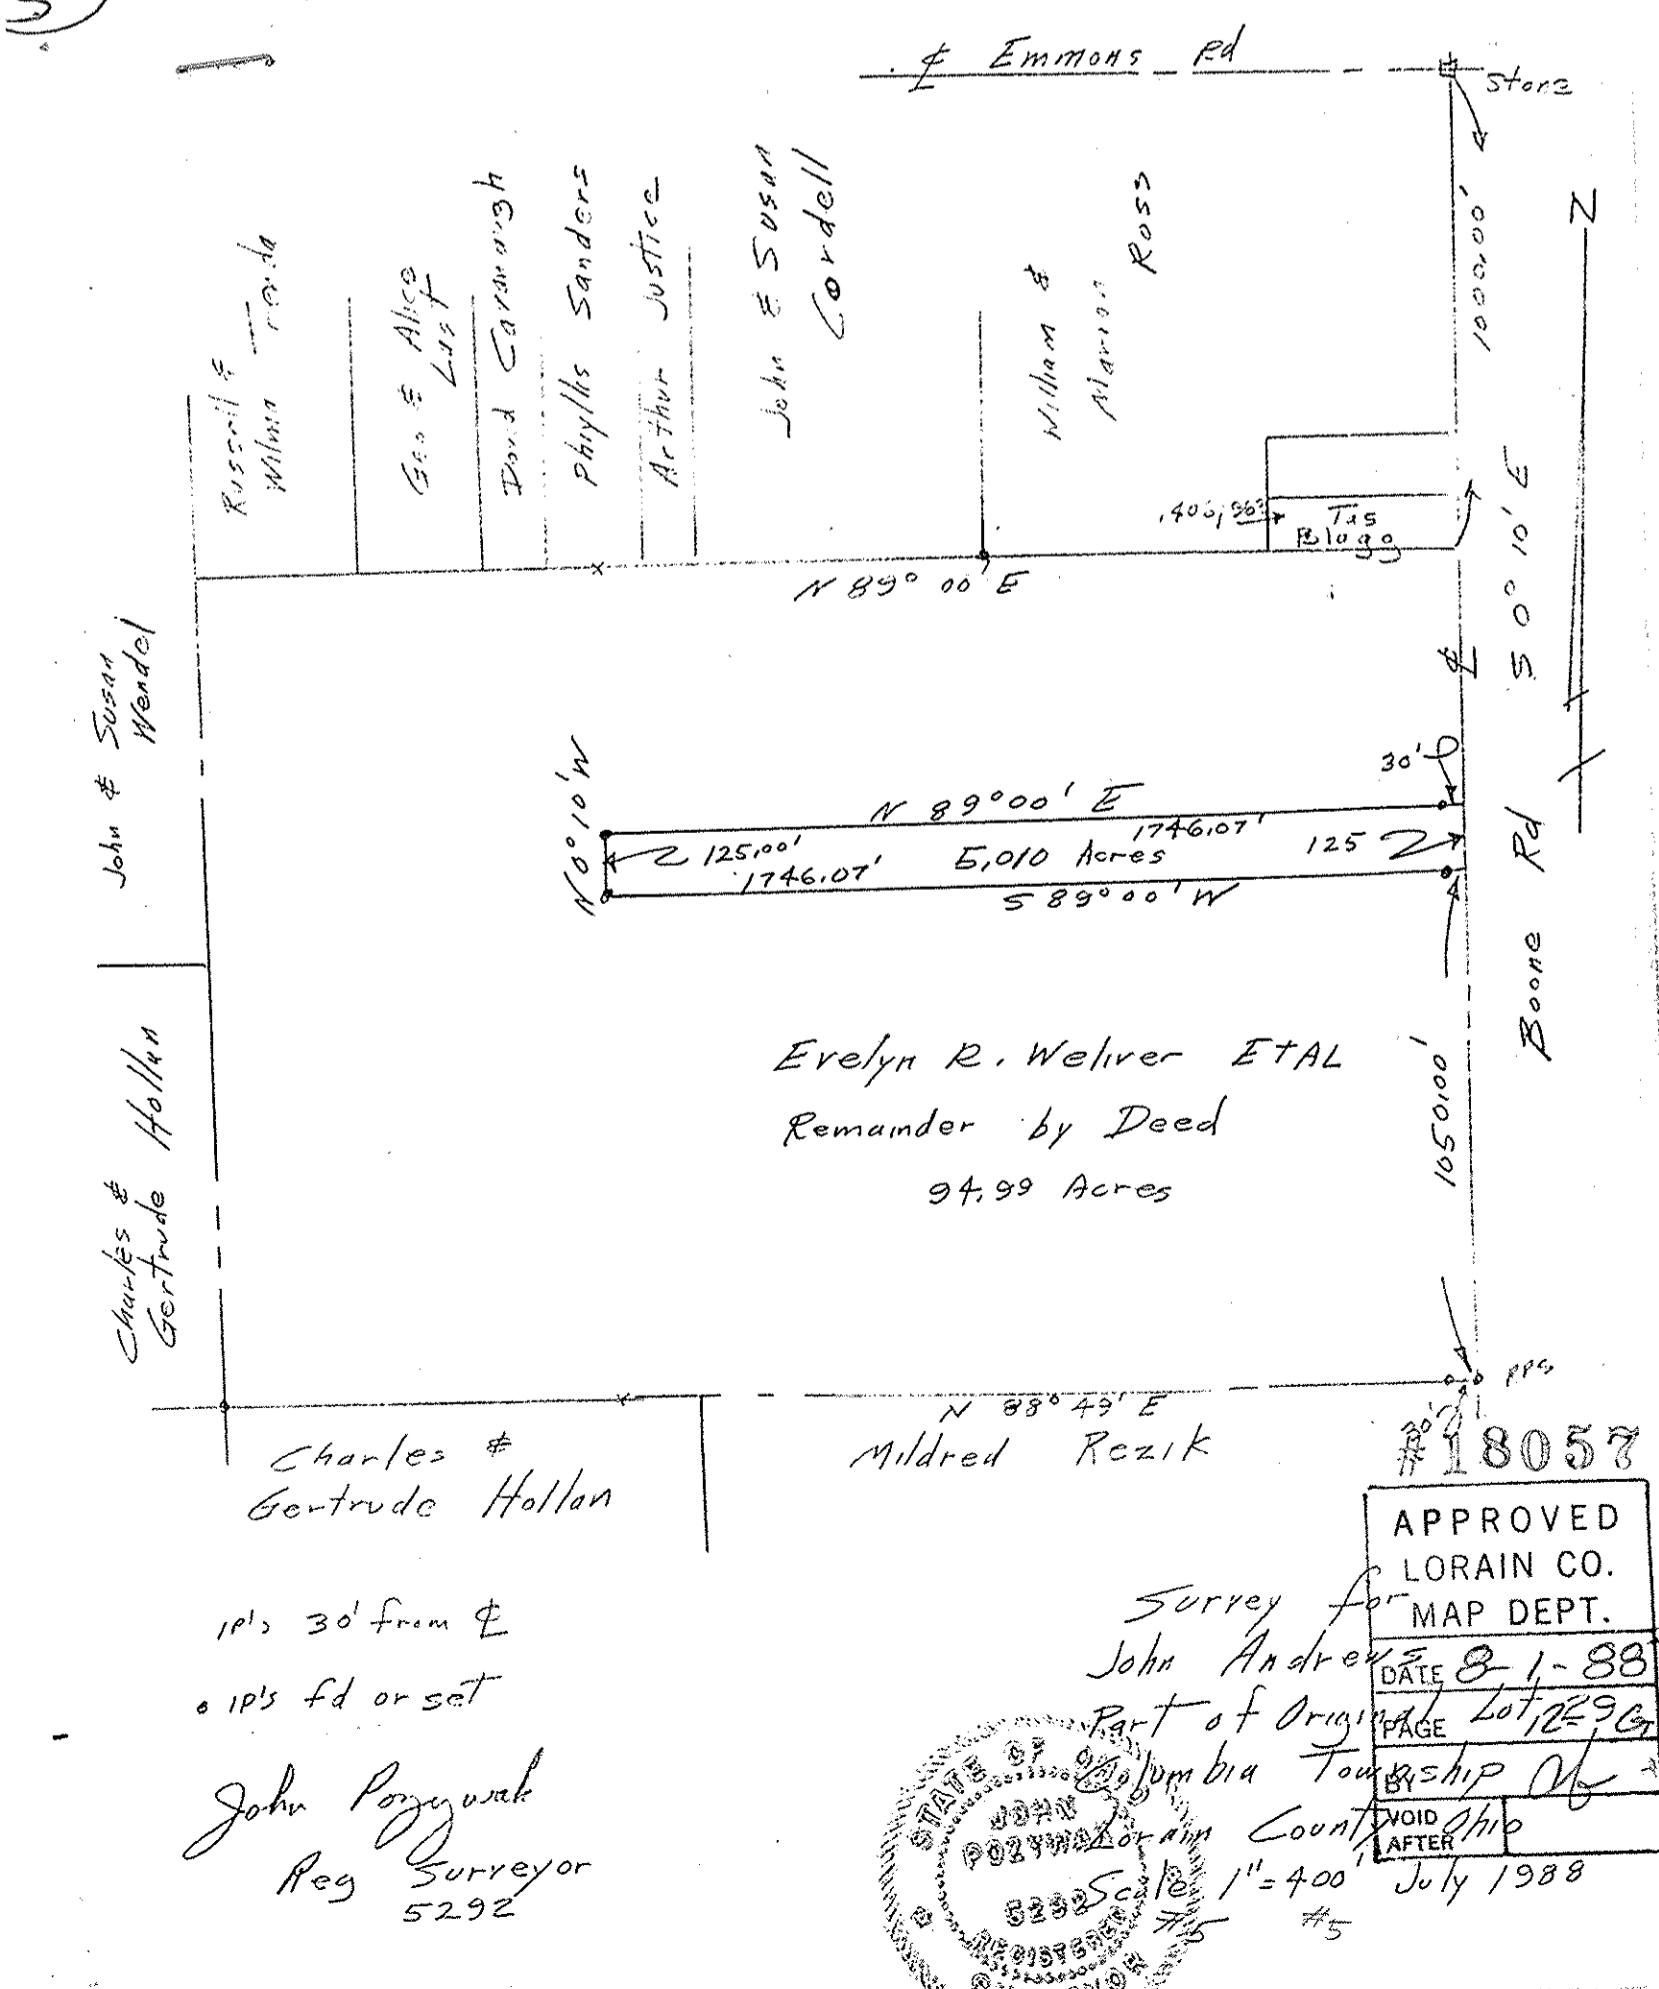 ℄ Emmons Rd
Stone
1000.00'
N
Russell &
Wilma
Geo & Alice
Last
David Cavanaugh
Phyllis Sanders
Arthur Justice
John & Susan
Cordell
William &
Marion
Ross
Blago
N 89° 00' E
S 0° 10' E
℄
Boone Rd
John & Susan
Wendel
30'
N 0° 10' W
N 89° 00' E
1746.07'
125.00'
5.010 Acres
125
1746.07'
S 89° 00' W
Charles &
Gertrude Hollan
Evelyn R. Weliver ETAL
Remainder by Deed
94.99 Acres
1050.00'
N 88° 49' E
30'
Charles &
Gertrude Hollan
Mildred Rezik
#18057
APPROVED
LORAIN CO.
MAP DEPT.
DATE 8-1-88
PAGE
BY
VOID
AFTER
IP's 30' from ℄
IP's fd or set
John Pozywak
Reg Surveyor
5292
Survey for
John Andrews
Part of Original Lot
Columbia Township
Lorain County Ohio
Scale 1"=400' July 1988
#5 #5
STATE OF
JOHN
POZYWAK
5292
REGISTERED